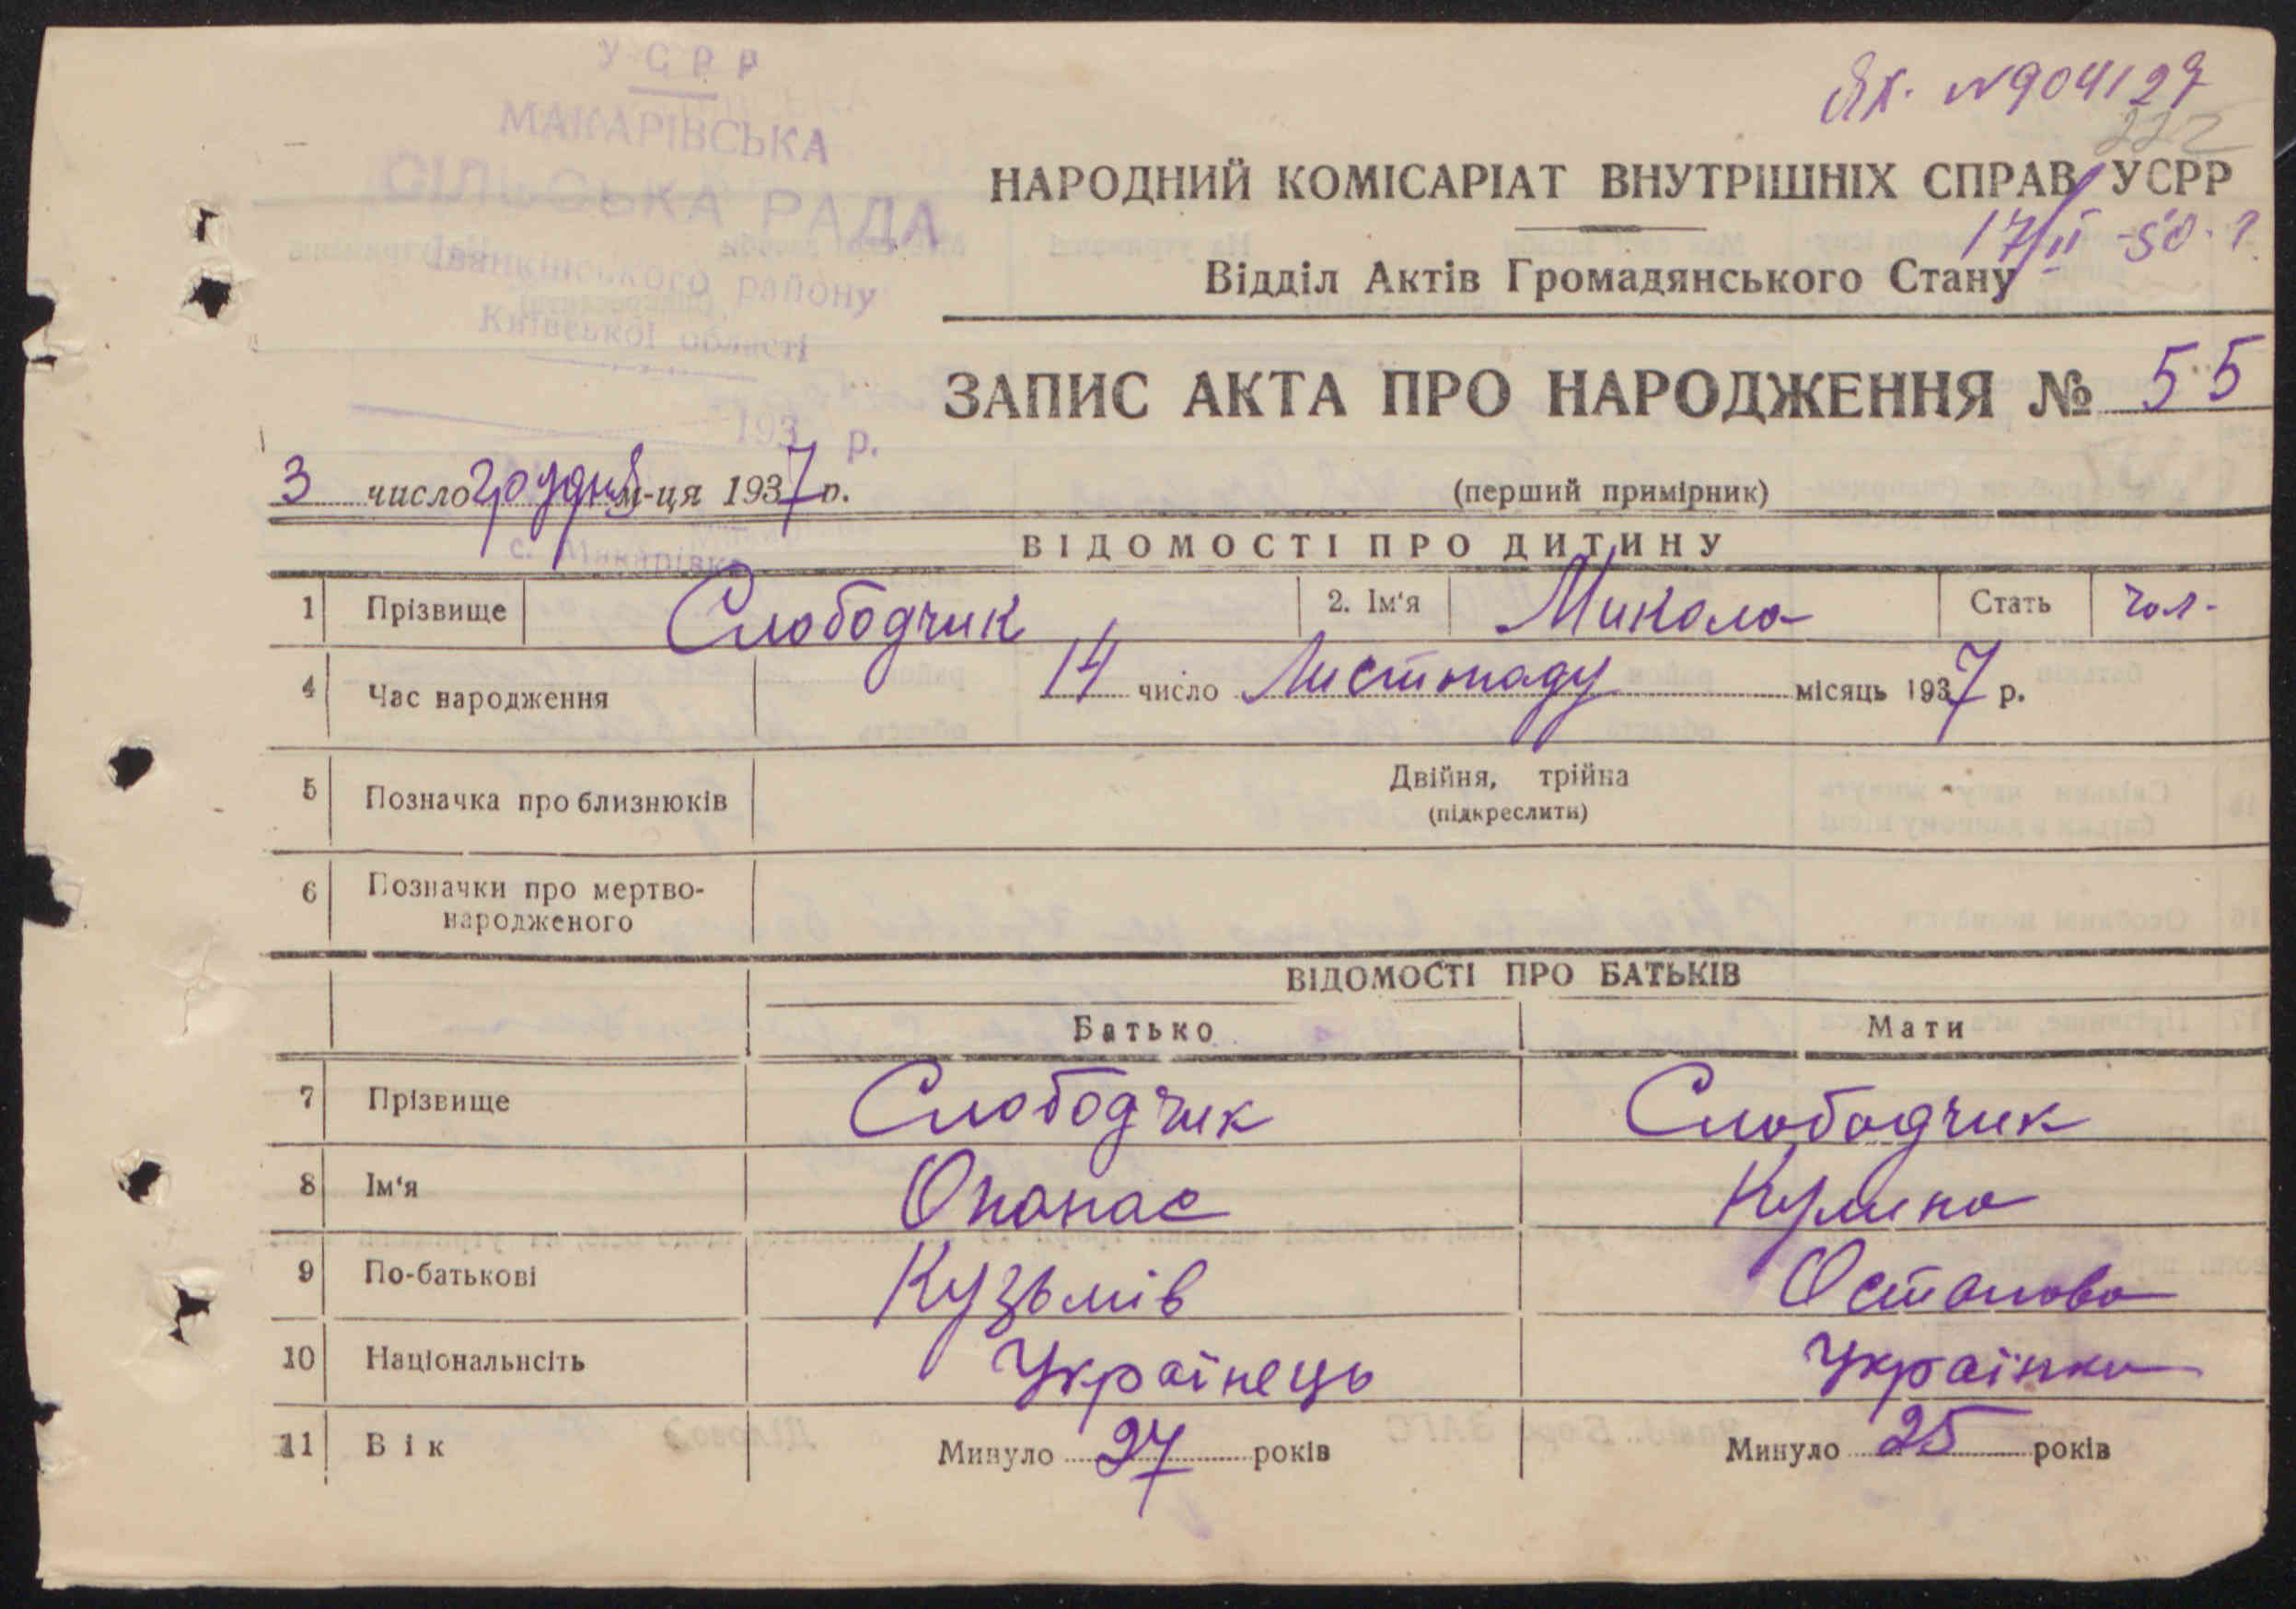 УСРР
МАКАРІВСЬКА
СІЛЬСЬКА РАДА
Іванківського району
Київської області
193 р.
с. Макарівка
ЯХ. N904127
222
17/II -50 р.
НАРОДНИЙ КОМІСАРІАТ ВНУТРІШНІХ СПРАВ УСРР
Відділ Актів Громадянського Стану
ЗАПИС АКТА ПРО НАРОДЖЕННЯ № 55
3 число грудня м-ця 1937 р.
(перший примірник)
ВІДОМОСТІ ПРО ДИТИНУ
1 Прізвище Слободчик 2. Ім'я Микола Стать чол.
4 Час народження 14 число Листопаду місяць 1937 р.
5 Позначка про близнюків Двійня, трійна
(підкреслити)
6 Позначки про мертво-
народженого
ВІДОМОСТІ ПРО БАТЬКІВ
Батько Мати
7 Прізвище Слободчик Слободчик
8 Ім'я Опанас Кулина
9 По-батькові Кузьмів Остапова
10 Національнсіть Українець Українка
11 Вік Минуло 27 років Минуло 25 років